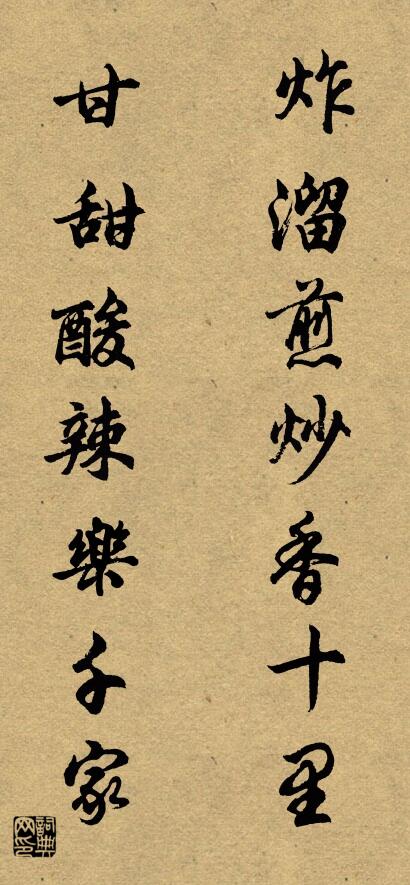 炸溜煎炒香十里
甘甜酸辣樂千家
詞典网印